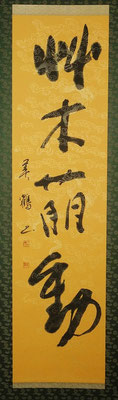 艸木萌動